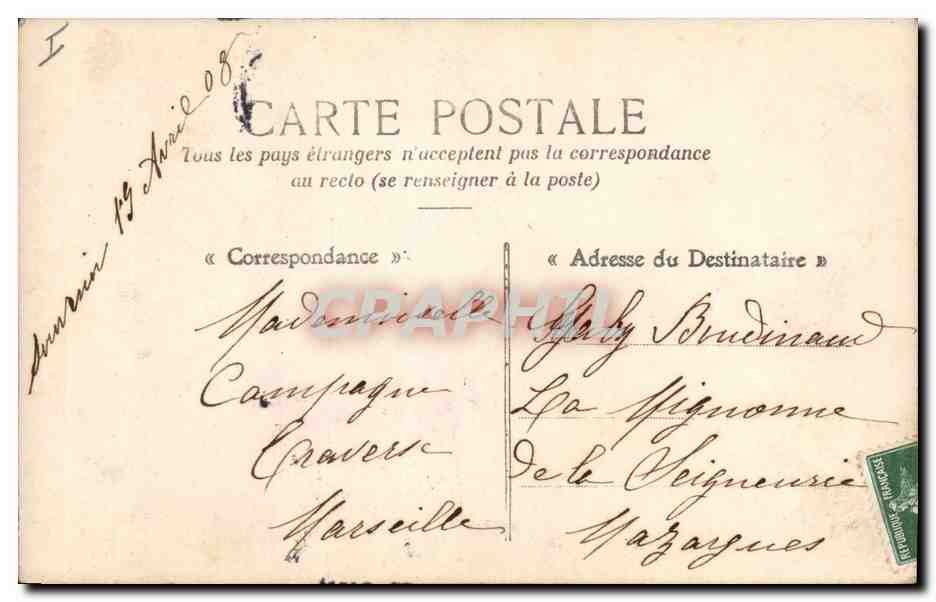 I
19 Avril 08
CARTE POSTALE
Tous les pays étrangers n'acceptent pas la correspondance
au recto (se renseigner à la poste)
« Correspondance »
« Adresse du Destinataire »
CPAPHIL
Mademoiselle Gaby
Campagne La Mignonne
Traverse de la Seigneurie
Marseille Mazargues
REPUBLIQUE FRANÇAISE